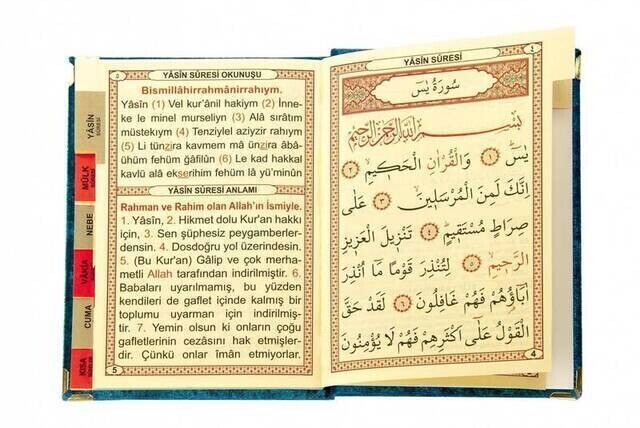 YÂSİN SÛRESİ OKUNUŞU
٥
Bismillâhirrahmânirrahıym.
Yâsîn (1) Vel kur'ânil hakiym (2) İnne-
ke le minel murseliyn (3) Alâ sırâtım
müstekıym (4) Tenziylel aziyzir rahıym
(5) Li tünzira kavmem mâ ünzira âbâ-
ühüm fehüm ğâfilûn (6) Le kad hakkal
kavlü alâ ekserihim fehüm lâ yü'minûn
YÂSİN SÛRESİ ANLAMI
Rahman ve Rahim olan Allah'ın İsmiyle.
1. Yâsîn, 2. Hikmet dolu Kur'an hakkı
için, 3. Sen şüphesiz peygamberler-
densin. 4. Dosdoğru yol üzerindesin.
5. (Bu Kur'an) Gâlip ve çok merha-
metli Allah tarafından indirilmiştir. 6.
Babaları uyarılmamış, bu yüzden
kendileri de gaflet içinde kalmış bir
toplumu uyarman için indirilmiş-
tir. 7. Yemin olsun ki onların çoğu
gafletlerinin cezasını hak etmişler-
dir. Çünkü onlar îmân etmiyorlar.
5
YÂSİN
SÛRESİ
MÜLK
NEBE
VÂKIA
CUMA
KISA
YÂSİN SÛRESİ
٤
سُورَةُ يٰسٓ
بِسْمِ اللّٰهِ الرَّحْمٰنِ الرَّحِيمِ
يٰسٓ ﴿١﴾ وَالْقُرْاٰنِ الْحَكِيمِ ﴿٢﴾
اِنَّكَ لَمِنَ الْمُرْسَلِينَ ﴿٣﴾ عَلٰى
صِرَاطٍ مُسْتَقِيمٍ ﴿٤﴾ تَنْزِيلَ الْعَزِيزِ
الرَّحِيمِ ﴿٥﴾ لِتُنْذِرَ قَوْمًا مَٓا اُنْذِرَ
اٰبَٓاؤُهُمْ فَهُمْ غَافِلُونَ ﴿٦﴾ لَقَدْ حَقَّ
الْقَوْلُ عَلٰٓى اَكْثَرِهِمْ فَهُمْ لَا يُؤْمِنُونَ
4